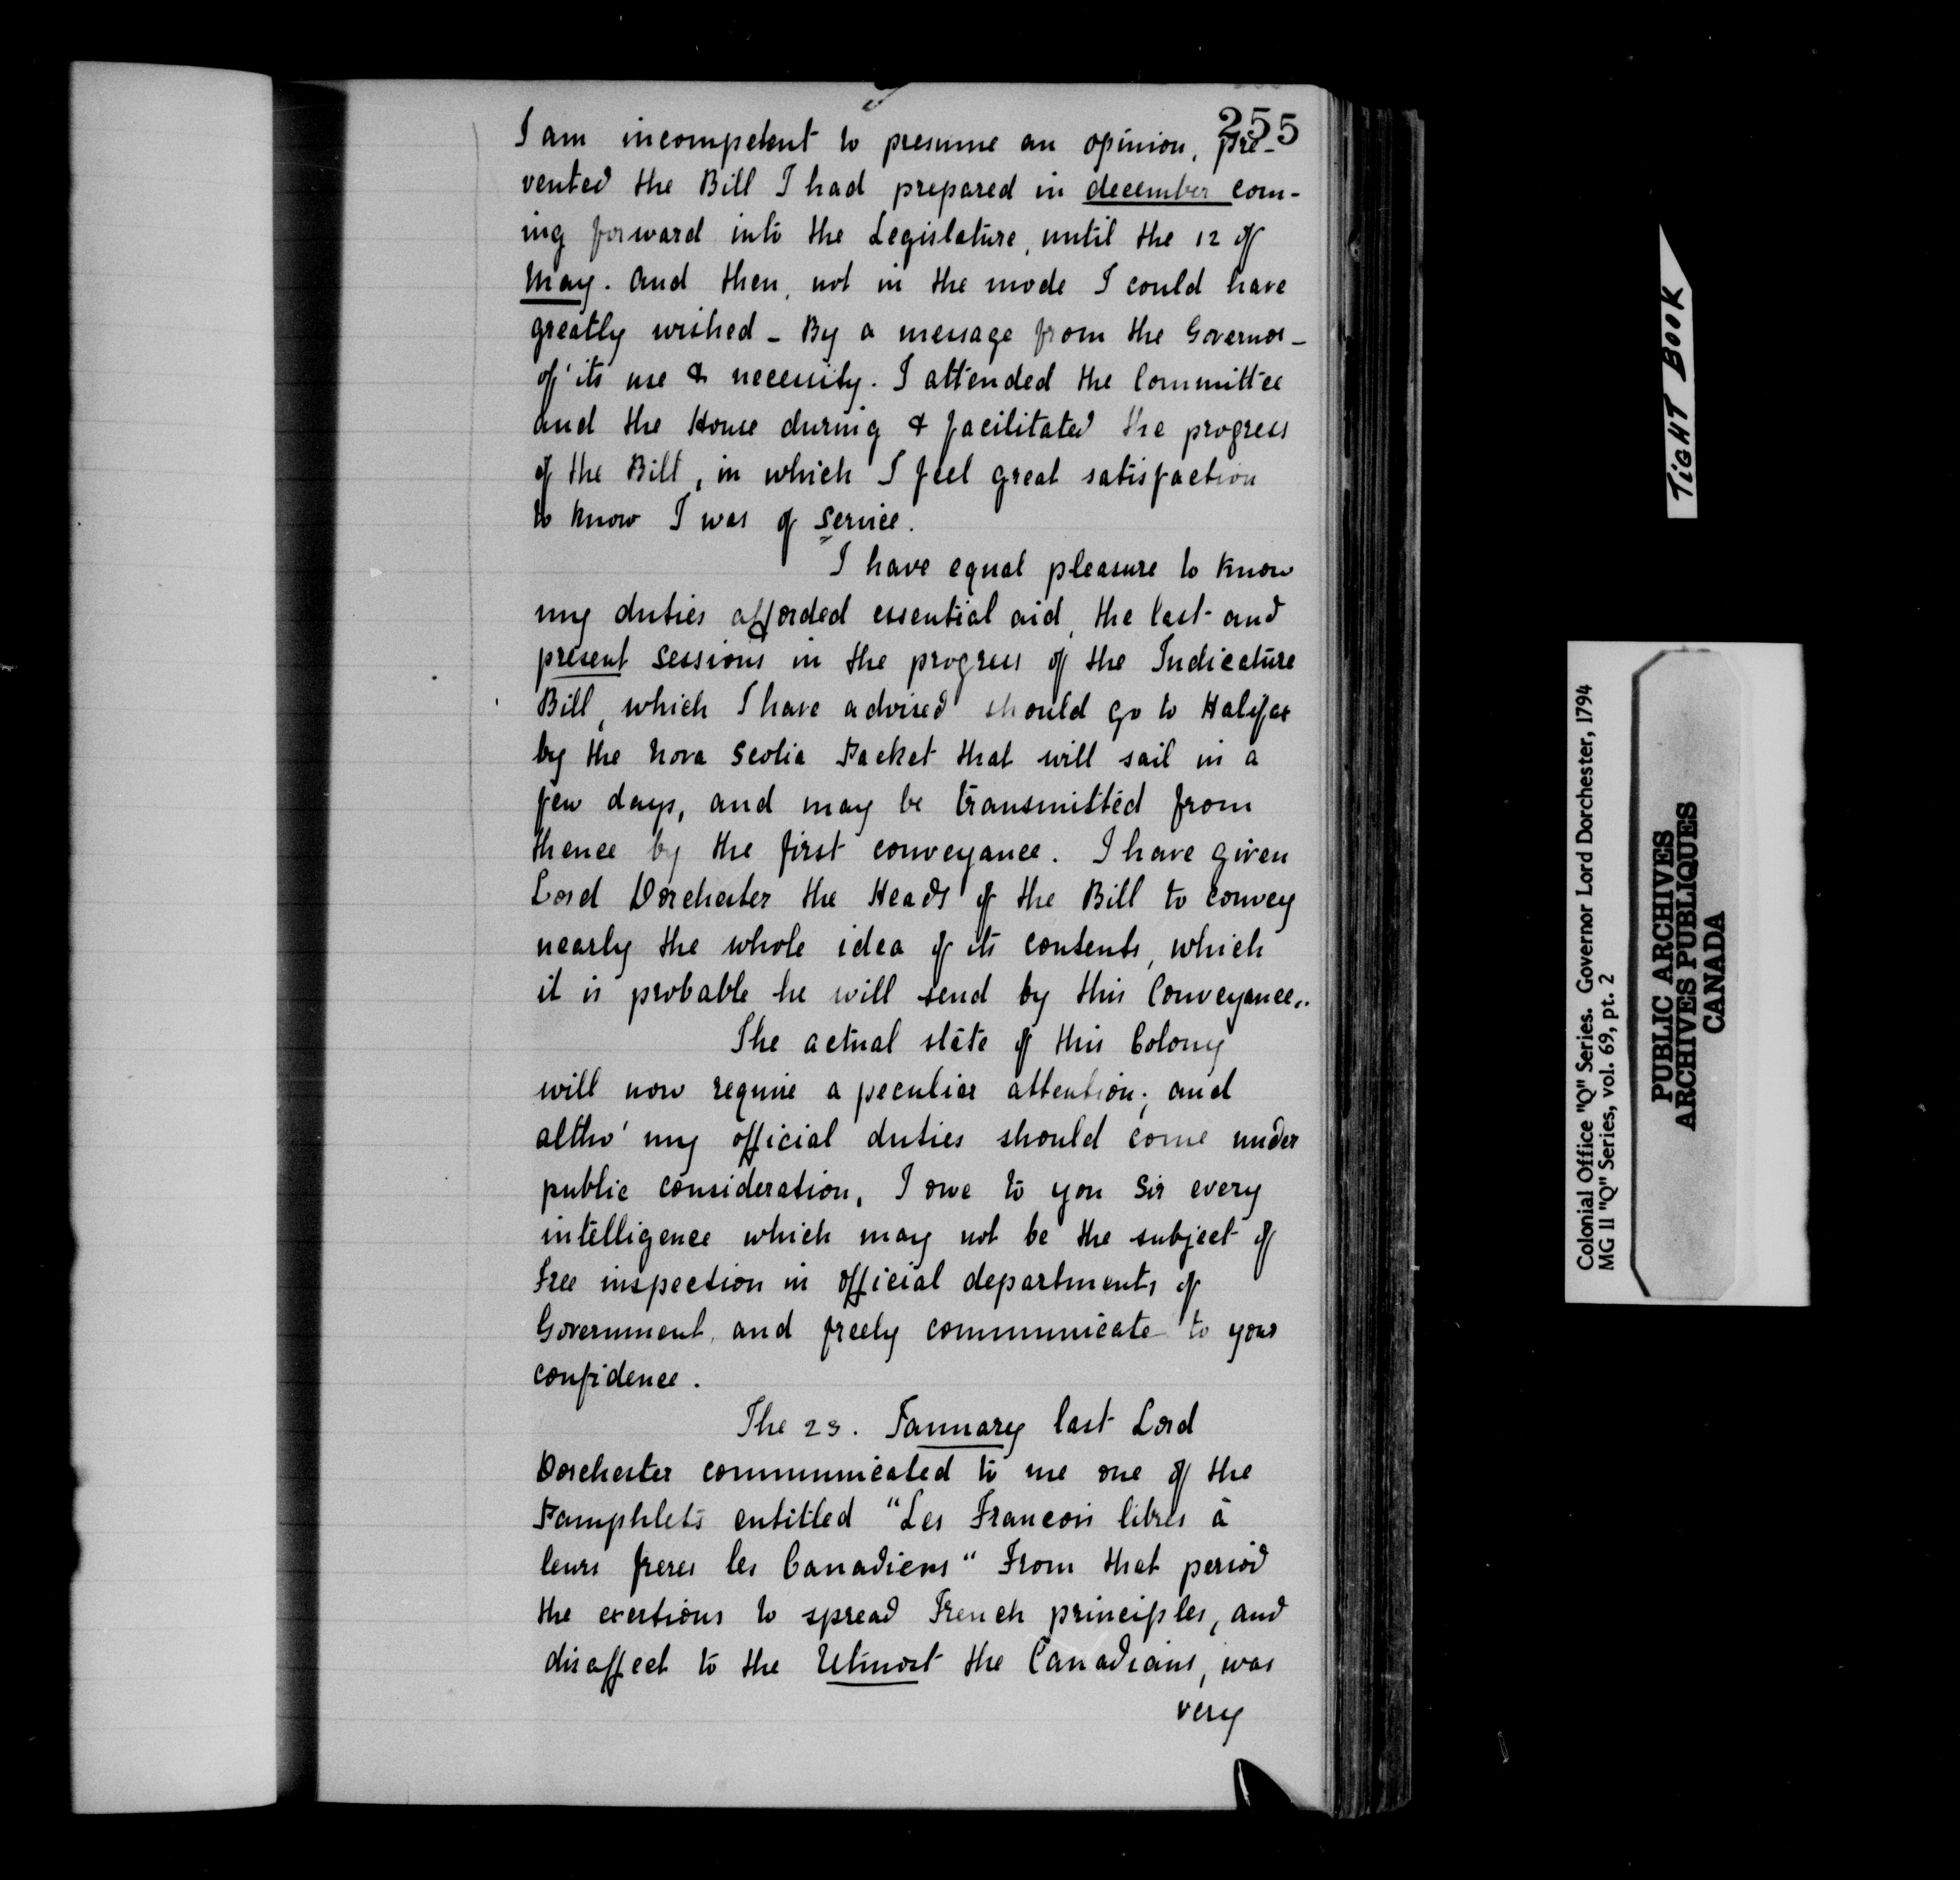 255
I am incompetent to presume an opinion, pre-
vented the Bill I had prepared in december com-
ing forward into the Legislature, until the 12 of
May. And then, not in the mode I could have
greatly wished - By a message from the Governor -
of its use & necessity. I attended the Committee
and the House during & facilitated the progress
of the Bill, in which I feel great satisfaction
to know I was of service.
I have equal pleasure to know
my duties afforded essential aid, the last and
present sessions in the progress of the Judicature
Bill, which I have advised should go to Halifax
by the Nova Scotia Packet that will sail in a
few days, and may be transmitted from
thence by the first conveyance. I have given
Lord Dorchester the Heads of the Bill to convey
nearly the whole idea of its contents, which
it is probable he will send by this Conveyance.
The actual state of this Colony
will now require a peculiar attention; and
altho' my official duties should come under
public consideration, I owe to you Sir every
intelligence which may not be the subject of
Free inspection in official departments of
Government, and freely communicate to your
confidence.
The 23. January last Lord
Dorchester communicated to me one of the
Pamphlets entitled "Les Francois libres à
leurs freres les Canadiens" From that period
the exertions to spread French principles, and
disaffect to the Utmost the Canadians, was
very
TIGHT BOOK
Colonial Office "Q" Series. Governor Lord Dorchester, 1794
MG 11 "Q" Series, vol. 69, pt. 2
PUBLIC ARCHIVES
ARCHIVES PUBLIQUES
CANADA